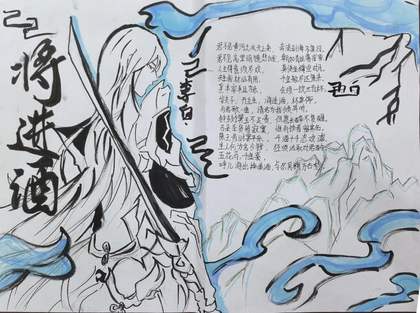 将进酒
李白
君不见黄河之水天上来, 奔流到海不复回。
君不见高堂明镜悲白发, 朝如青丝暮成雪。
人生得意须尽欢, 莫使金樽空对月。
天生我材必有用, 千金散尽还复来。
烹羊宰牛且为乐, 会须一饮三百杯。
岑夫子, 丹丘生, 将进酒, 杯莫停。
与君歌一曲, 请君为我倾耳听。
钟鼓馔玉不足贵, 但愿长醉不愿醒。
古来圣贤皆寂寞, 惟有饮者留其名。
陈王昔时宴平乐, 斗酒十千恣欢谑。
主人何为言少钱, 径须沽取对君酌。
五花马, 千金裘,
呼儿将出换美酒, 与尔同销万古愁。